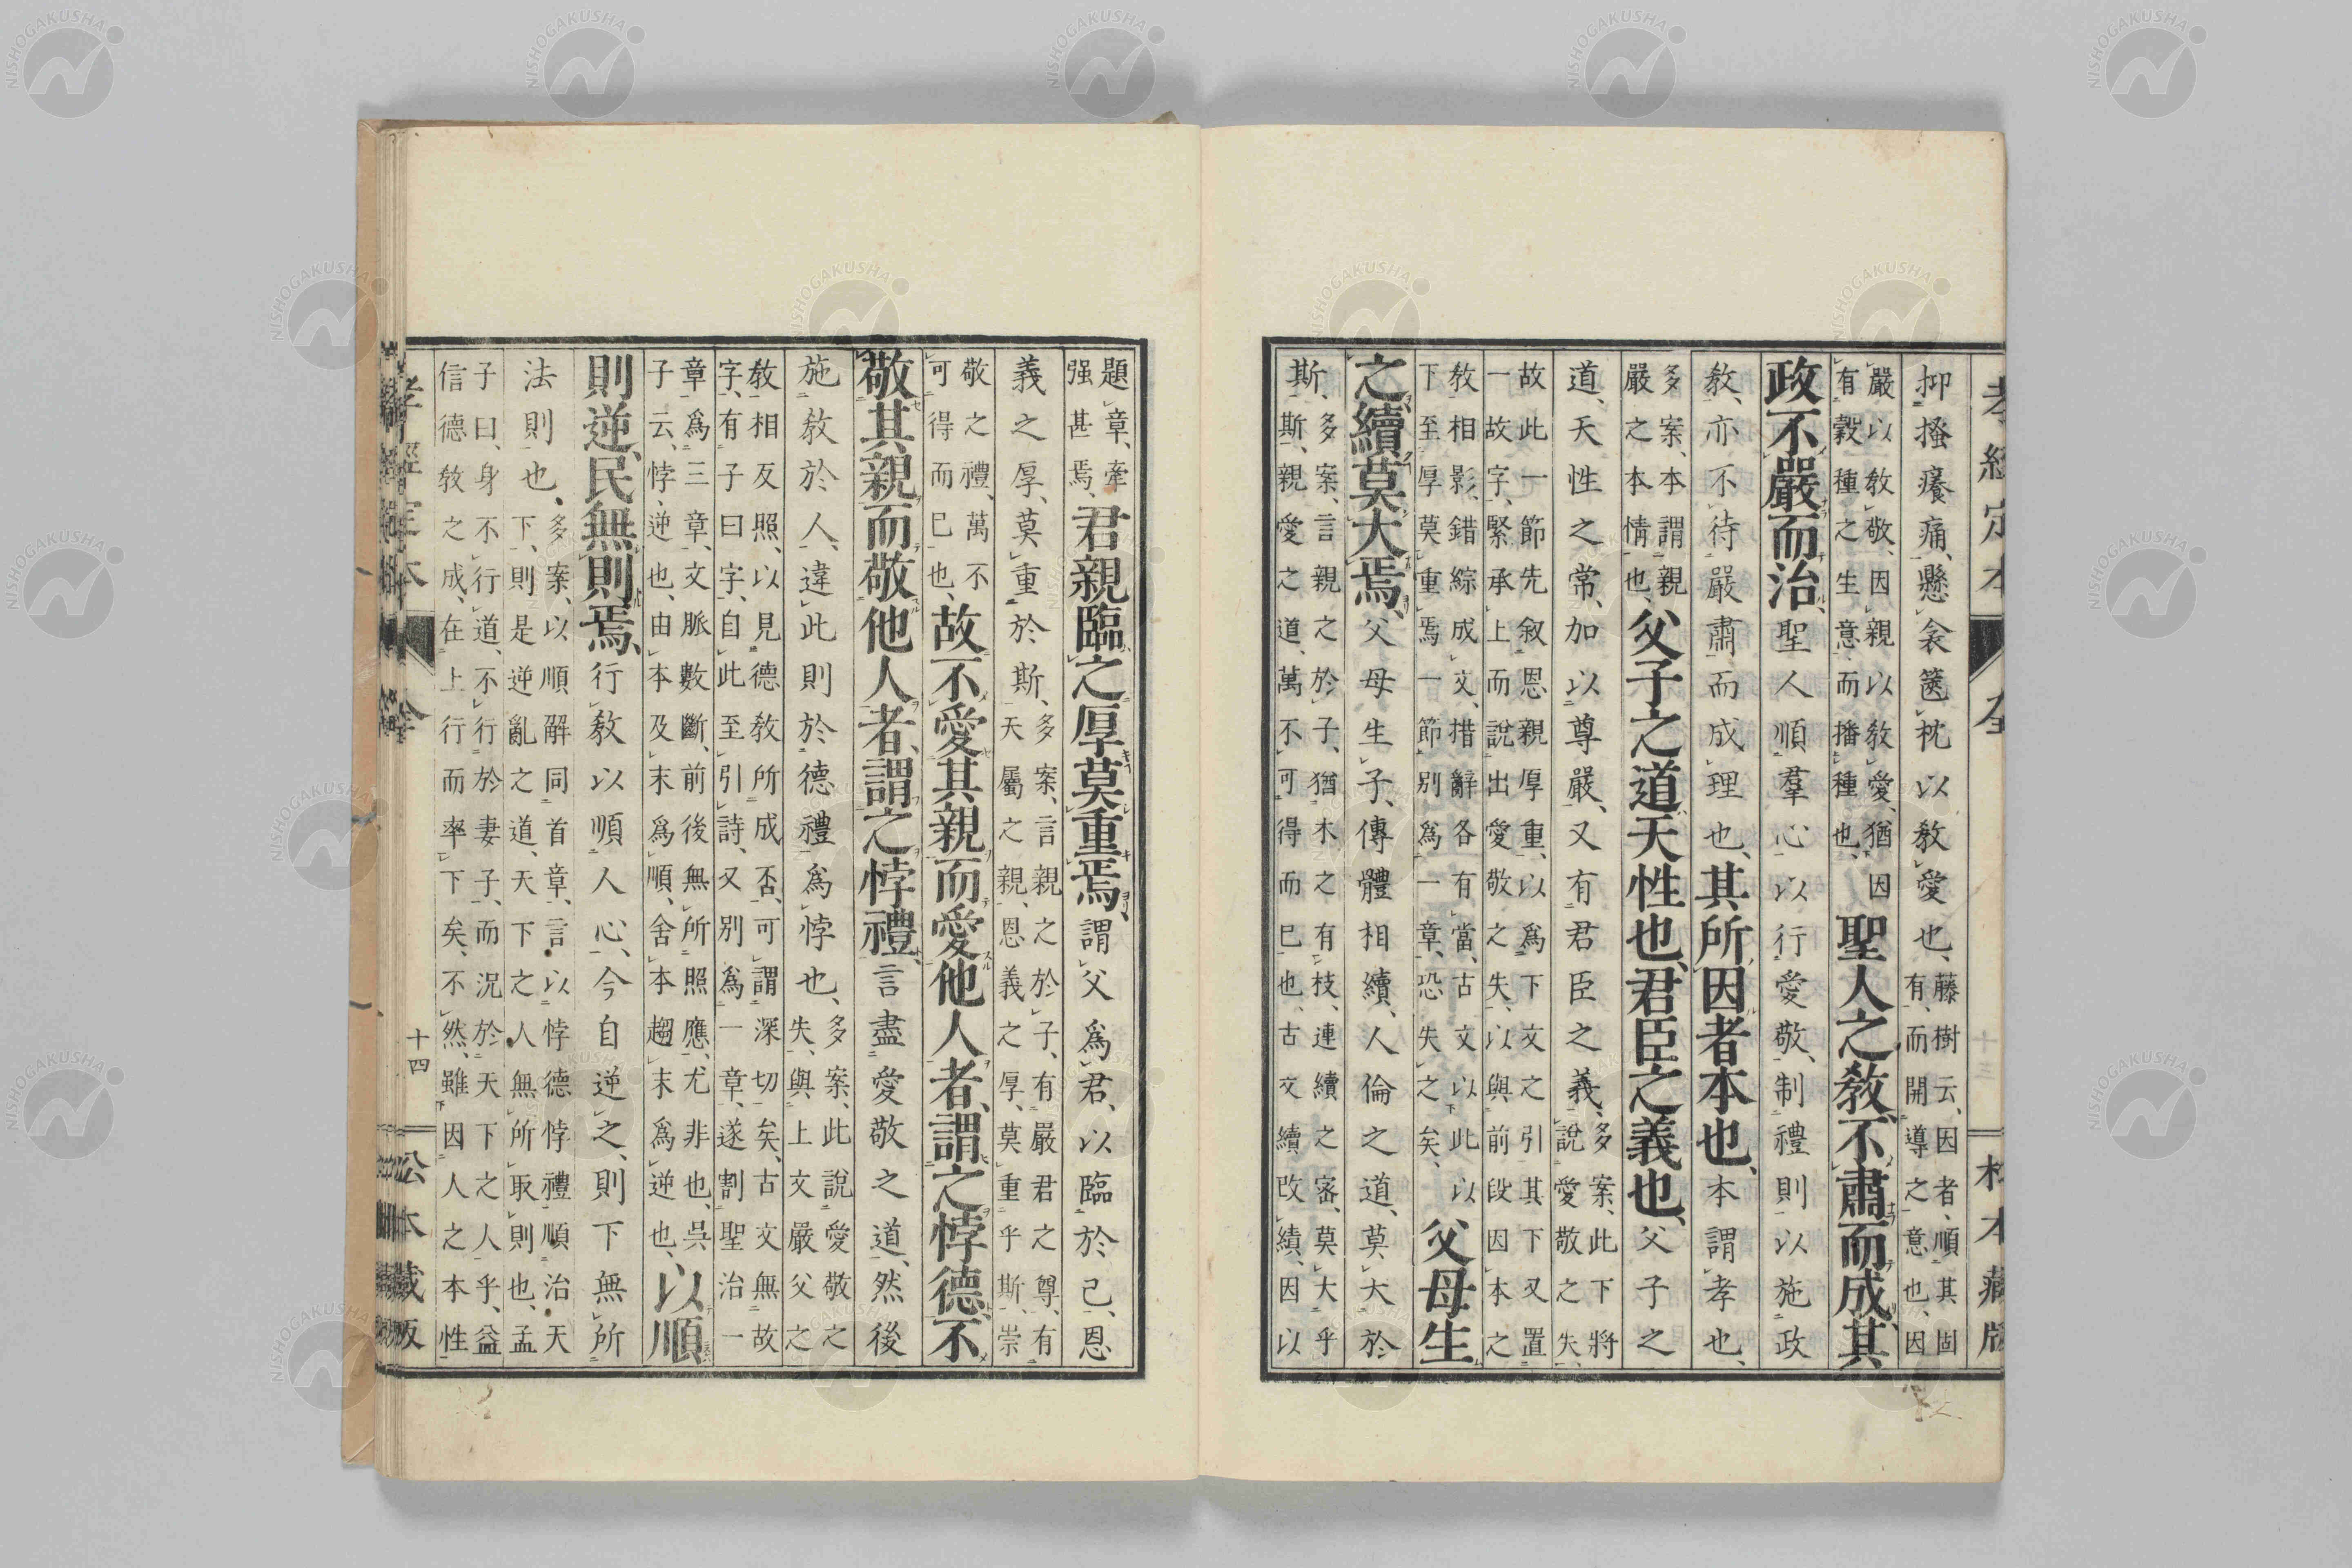 孝經定本 全 十三 松本藏版
抑搔癢痛、懸衾篋枕以敎愛也、藤樹云、因者、順其固
有、而開導之意也、因
嚴以敎敬、因親以敎愛、猶因
有穀種之生意、而播種也、聖人之敎、不肅而成、其
政不嚴而治、聖人順羣心以行愛敬、制禮則以施政
敎、亦不待嚴肅而成理也、其所因者本也、本謂孝也、
多案、本謂親
嚴之本情也、父子之道天性也、君臣之義也、父子之
道、天性之常、加以尊嚴、又有君臣之義、多案、此下將
說愛敬之失、
故此一節先敘恩親厚重、以爲下文之引其下又置
一故字、緊承上而說出愛敬之失、以與前段因本之
敎相影、錯綜成文、措辭各有當、古文以此以
下至厚莫重焉一節別爲一章、恐失之矣、父母生
之續莫大焉、父母生子、傳體相續、人倫之道、莫大於
斯、多案、言親之於子、猶木之有枝、連續之密、莫大乎
斯、親愛之道、萬不可得而已也、古文續改績、因以
題章、牽
强甚焉、君親臨之厚莫重焉、謂父爲君、以臨於己、恩
義之厚、莫重於斯、多案、言親之於子、有嚴君之尊、有
天屬之親、恩義之厚、莫重乎斯、崇
敬之禮、萬不
可得而已也、故不愛其親而愛他人者、謂之悖德、不
敬其親而敬他人者、謂之悖禮、言盡愛敬之道、然後
施敎於人、違此則於德禮爲悖也、多案、此說愛敬之
失、與上文嚴父之
敎相反照、以見德敎所成否、可謂深切矣、古文無故
字、有子曰字、自此至引詩、又別爲一章、遂割聖治一
章爲三章、文脈數斷、前後無所照應、尤非也、吳
子云、悖逆也、由本及末爲順、舍本趨末爲逆也、以順
則逆、民無則焉、行敎以順人心、今自逆之、則下無所
法則也、多案、以順解同首章、言以悖德悖禮順治天
下、則是逆亂之道、天下之人無所取則也、孟
子曰、身不行道、不行於妻子、而況於天下之人乎、益
信德敎之成、在上行而率下矣、不然、雖因人之本性
孝經定本 全 十四 松本藏版